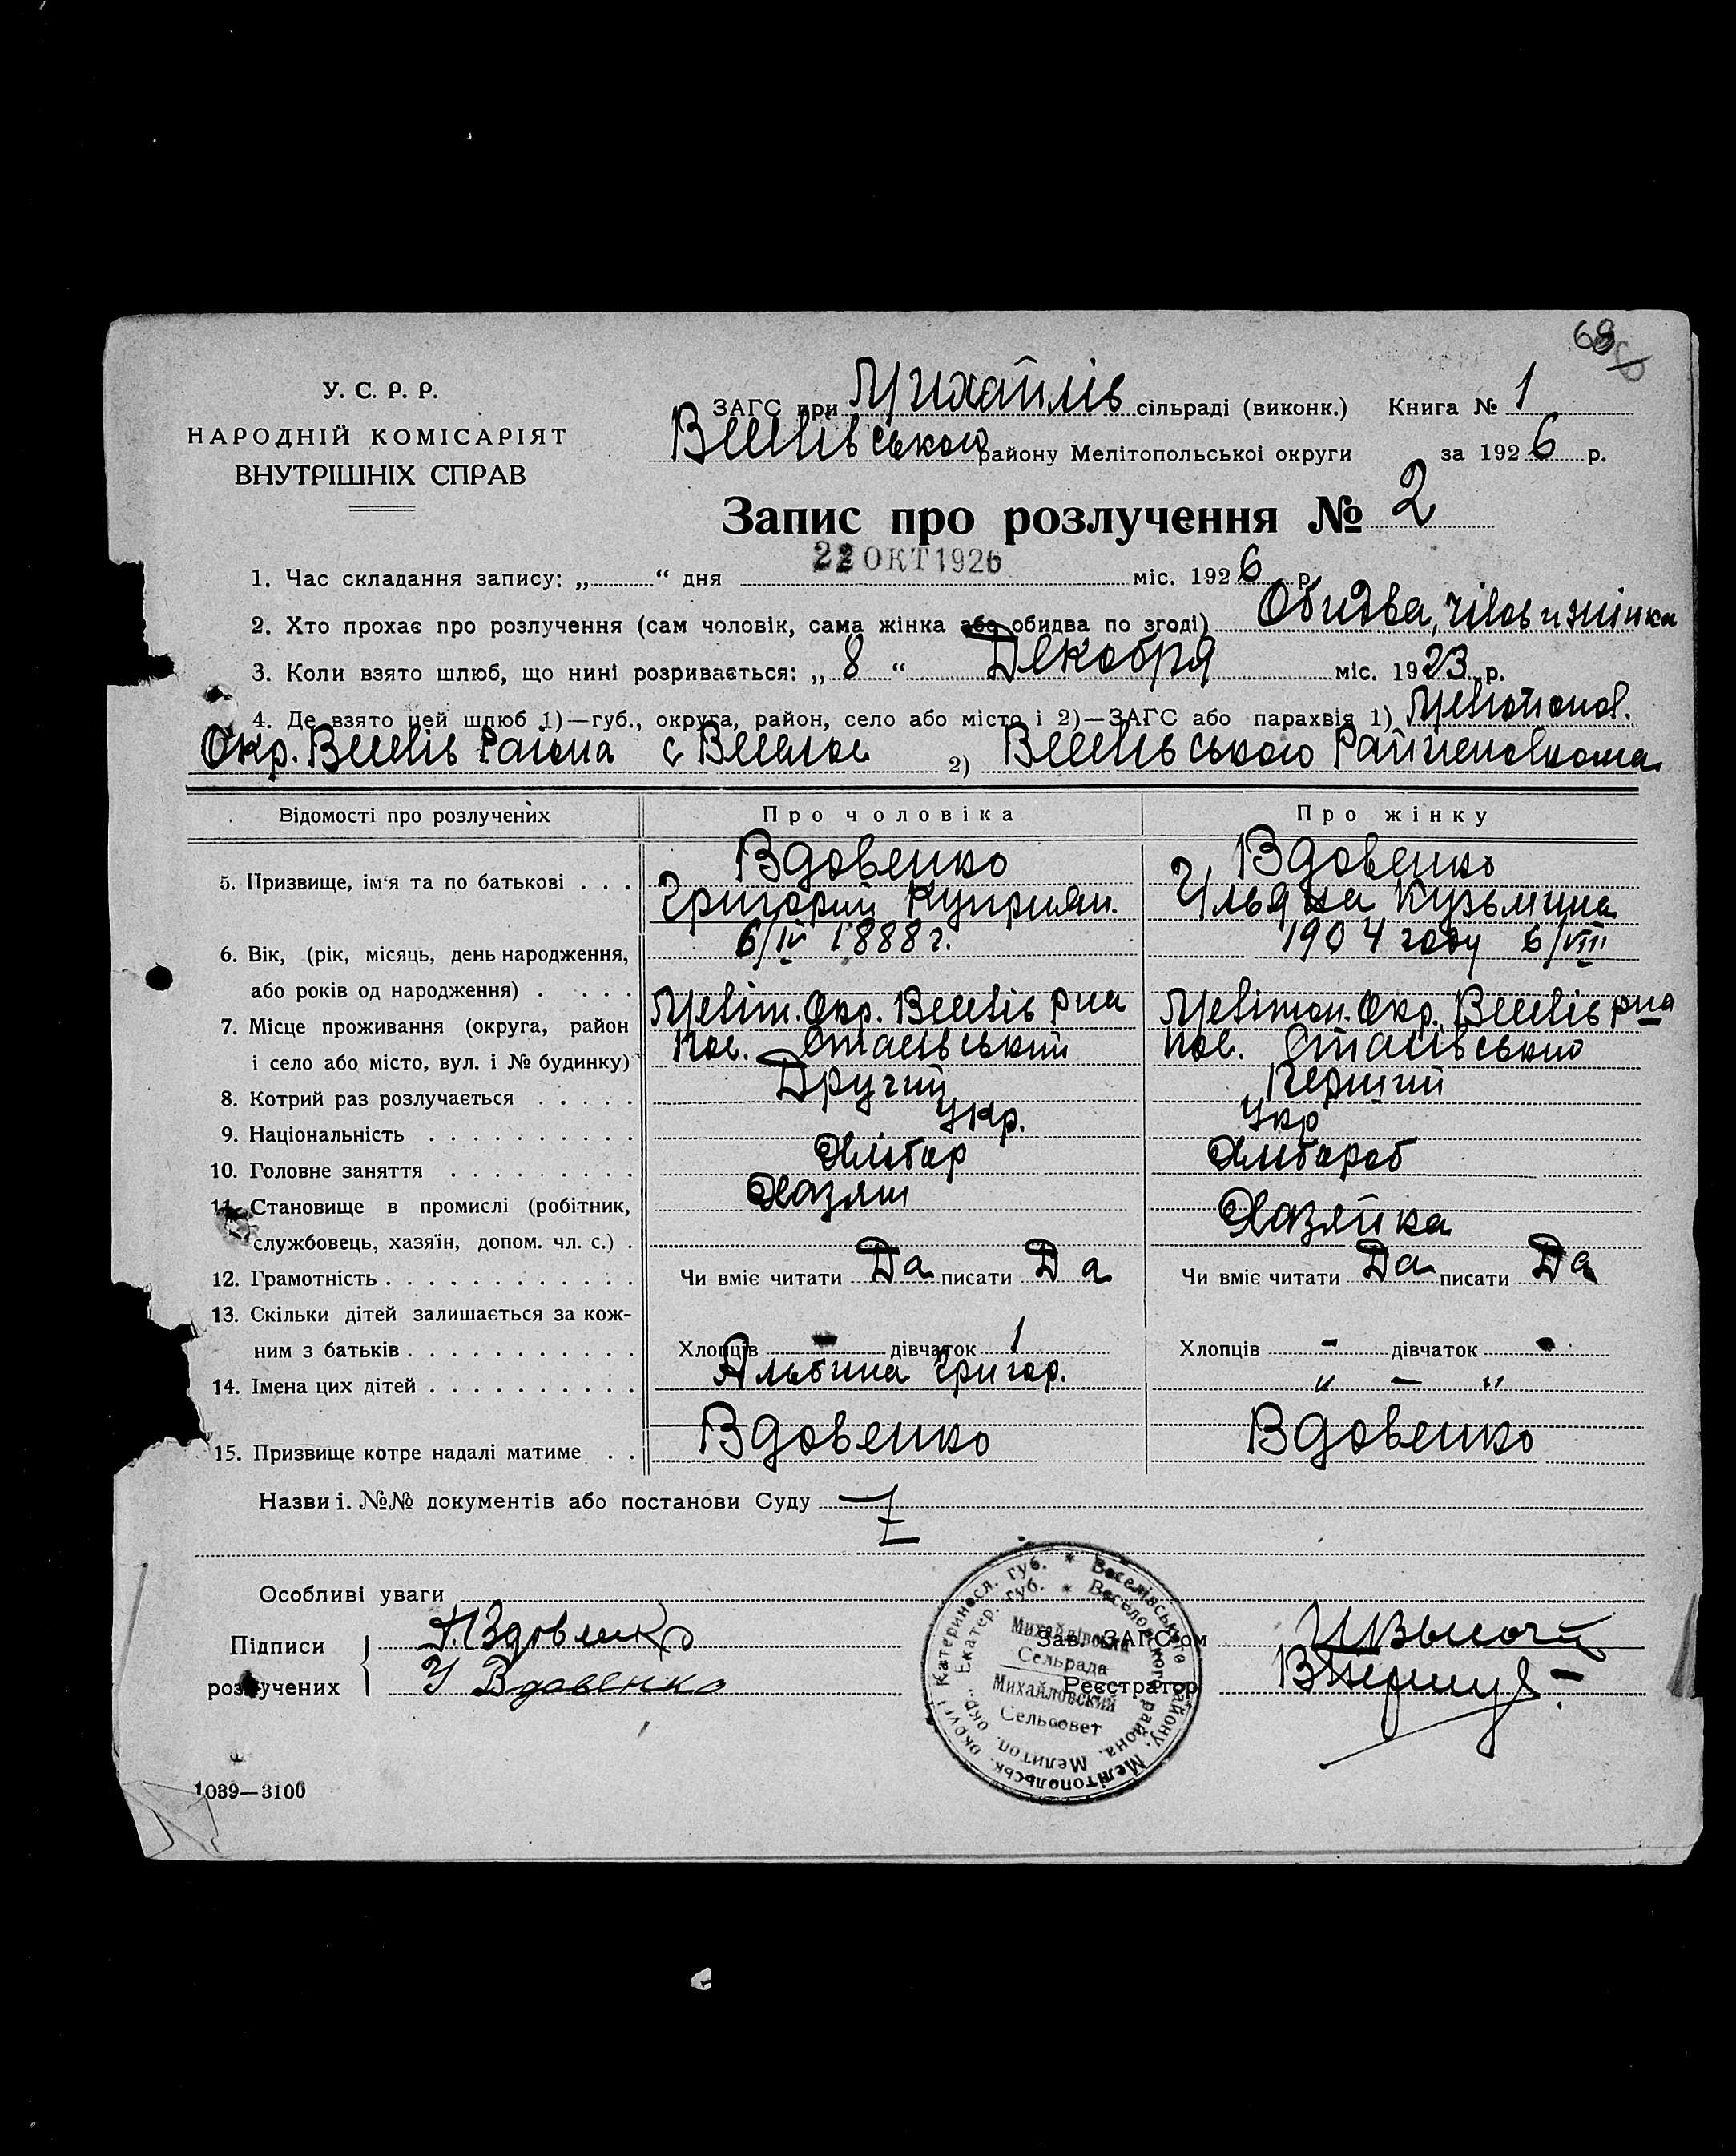 69
У. С. Р. Р.
НАРОДНІЙ КОМІСАРІЯТ
ВНУТРІШНІХ СПРАВ
ЗАГС при Михайлів сільраді (виконк.) Книга № 1
Веселівського району Мелітопольської округи за 1926 р.
Запис про розлучення № 2
1. Час складання запису: „ “ дня 22 ОКТ 1926 міс. 1926 р.
2. Хто прохає про розлучення (сам чоловік, сама жінка або обидва по згоді) Обидва, чілов и жінка
3. Коли взято шлюб, що нині розривається: „ 8 “ Декобря міс. 1923 р.
4. Де взято цей шлюб 1)—губ., округа, район, село або місто і 2)—ЗАГС або парахвія 1) Мелітопол.
Окр. Веселів Района с Веселое 2) Веселівського Райисполкома
Відомості про розлучених Про чоловіка Про жінку
5. Призвище, ім‘я та по батькові . . . Вдовенко Вдовенко
Григорий Куприян. Ульяна Кузьмина
6. Вік, (рік, місяць, день народження, 6/IV 1888 г. 1904 году 6/VIII
або років од народження) . . . .
7. Місце проживання (округа, район Меліт. Окр. Веселів рна Мелітоп. Окр. Веселів рна
і село або місто, вул. і № будинку) пос. Отасівський пос. Отасівський
8. Котрий раз розлучається . . . . . Другий Перший
9. Національність . . . . . . . . . . Укр. Укр
10. Головне заняття . . . . . . . . Хлібор Хлібороб
11. Становище в промислі (робітник, Хазяин
службовець, хазяїн, допом. чл. с.) . Хазяйка
12. Грамотність . . . . . . . . . . . . Чи вміє читати Да писати Да Чи вміє читати Да писати Да
13. Скільки дітей залишається за кож-
ним з батьків . . . . . . . . . . . Хлопців - дівчаток 1 Хлопців - дівчаток -
14. Імена цих дітей . . . . . . . . . . Альбина Григор. „ — „
15. Призвище котре надалі матиме . . Вдовенко Вдовенко
Назви і. №№ документів або постанови Суду
Особливі уваги
Підписи Г. Вдовенко Зав. ЗАГС‘ом
розлучених У Вдовенко Реєстратор
Катериносл. губ. * Веселівського району, Мелітопольськ. округи
Екатер. губ. * Веселовского района, Мелитоп. окр.
Михайлівська
Сельрада
Михайловский
Сельсовет
1039—3100